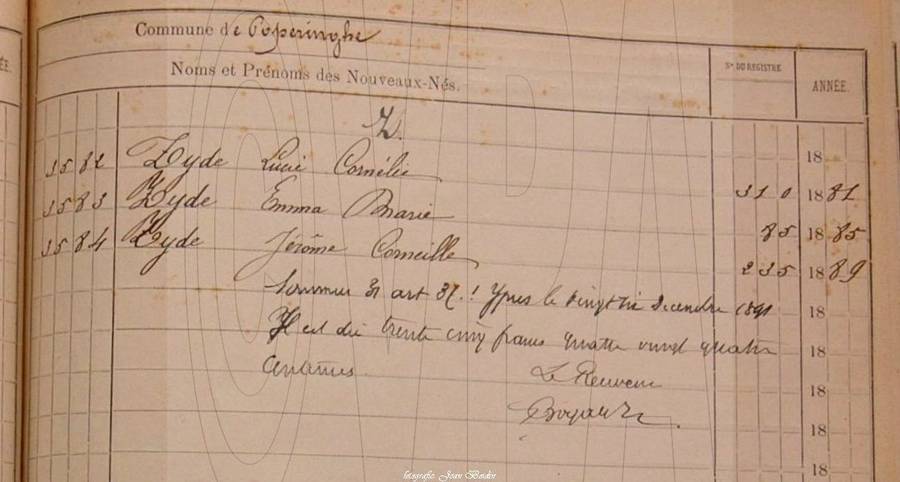 ÉE.
Commune de Poperinghe
Noms et Prénoms des Nouveaux-Nés.
Nº DU REGISTRE
ANNÉE.
Z.
18
3582 Zyde Lucie Cornélie 310 1881
3583 Zyde Emma Marie 85 1885
3584 Zyde Jérôme Corneille 235 1889
art 37.! Ypres le Decembre 1891 18
Il est dû trente cinq francs quatre vingt quatre 18
centimes Le Receveur 18
18
18
fotografie: Joan Bardin